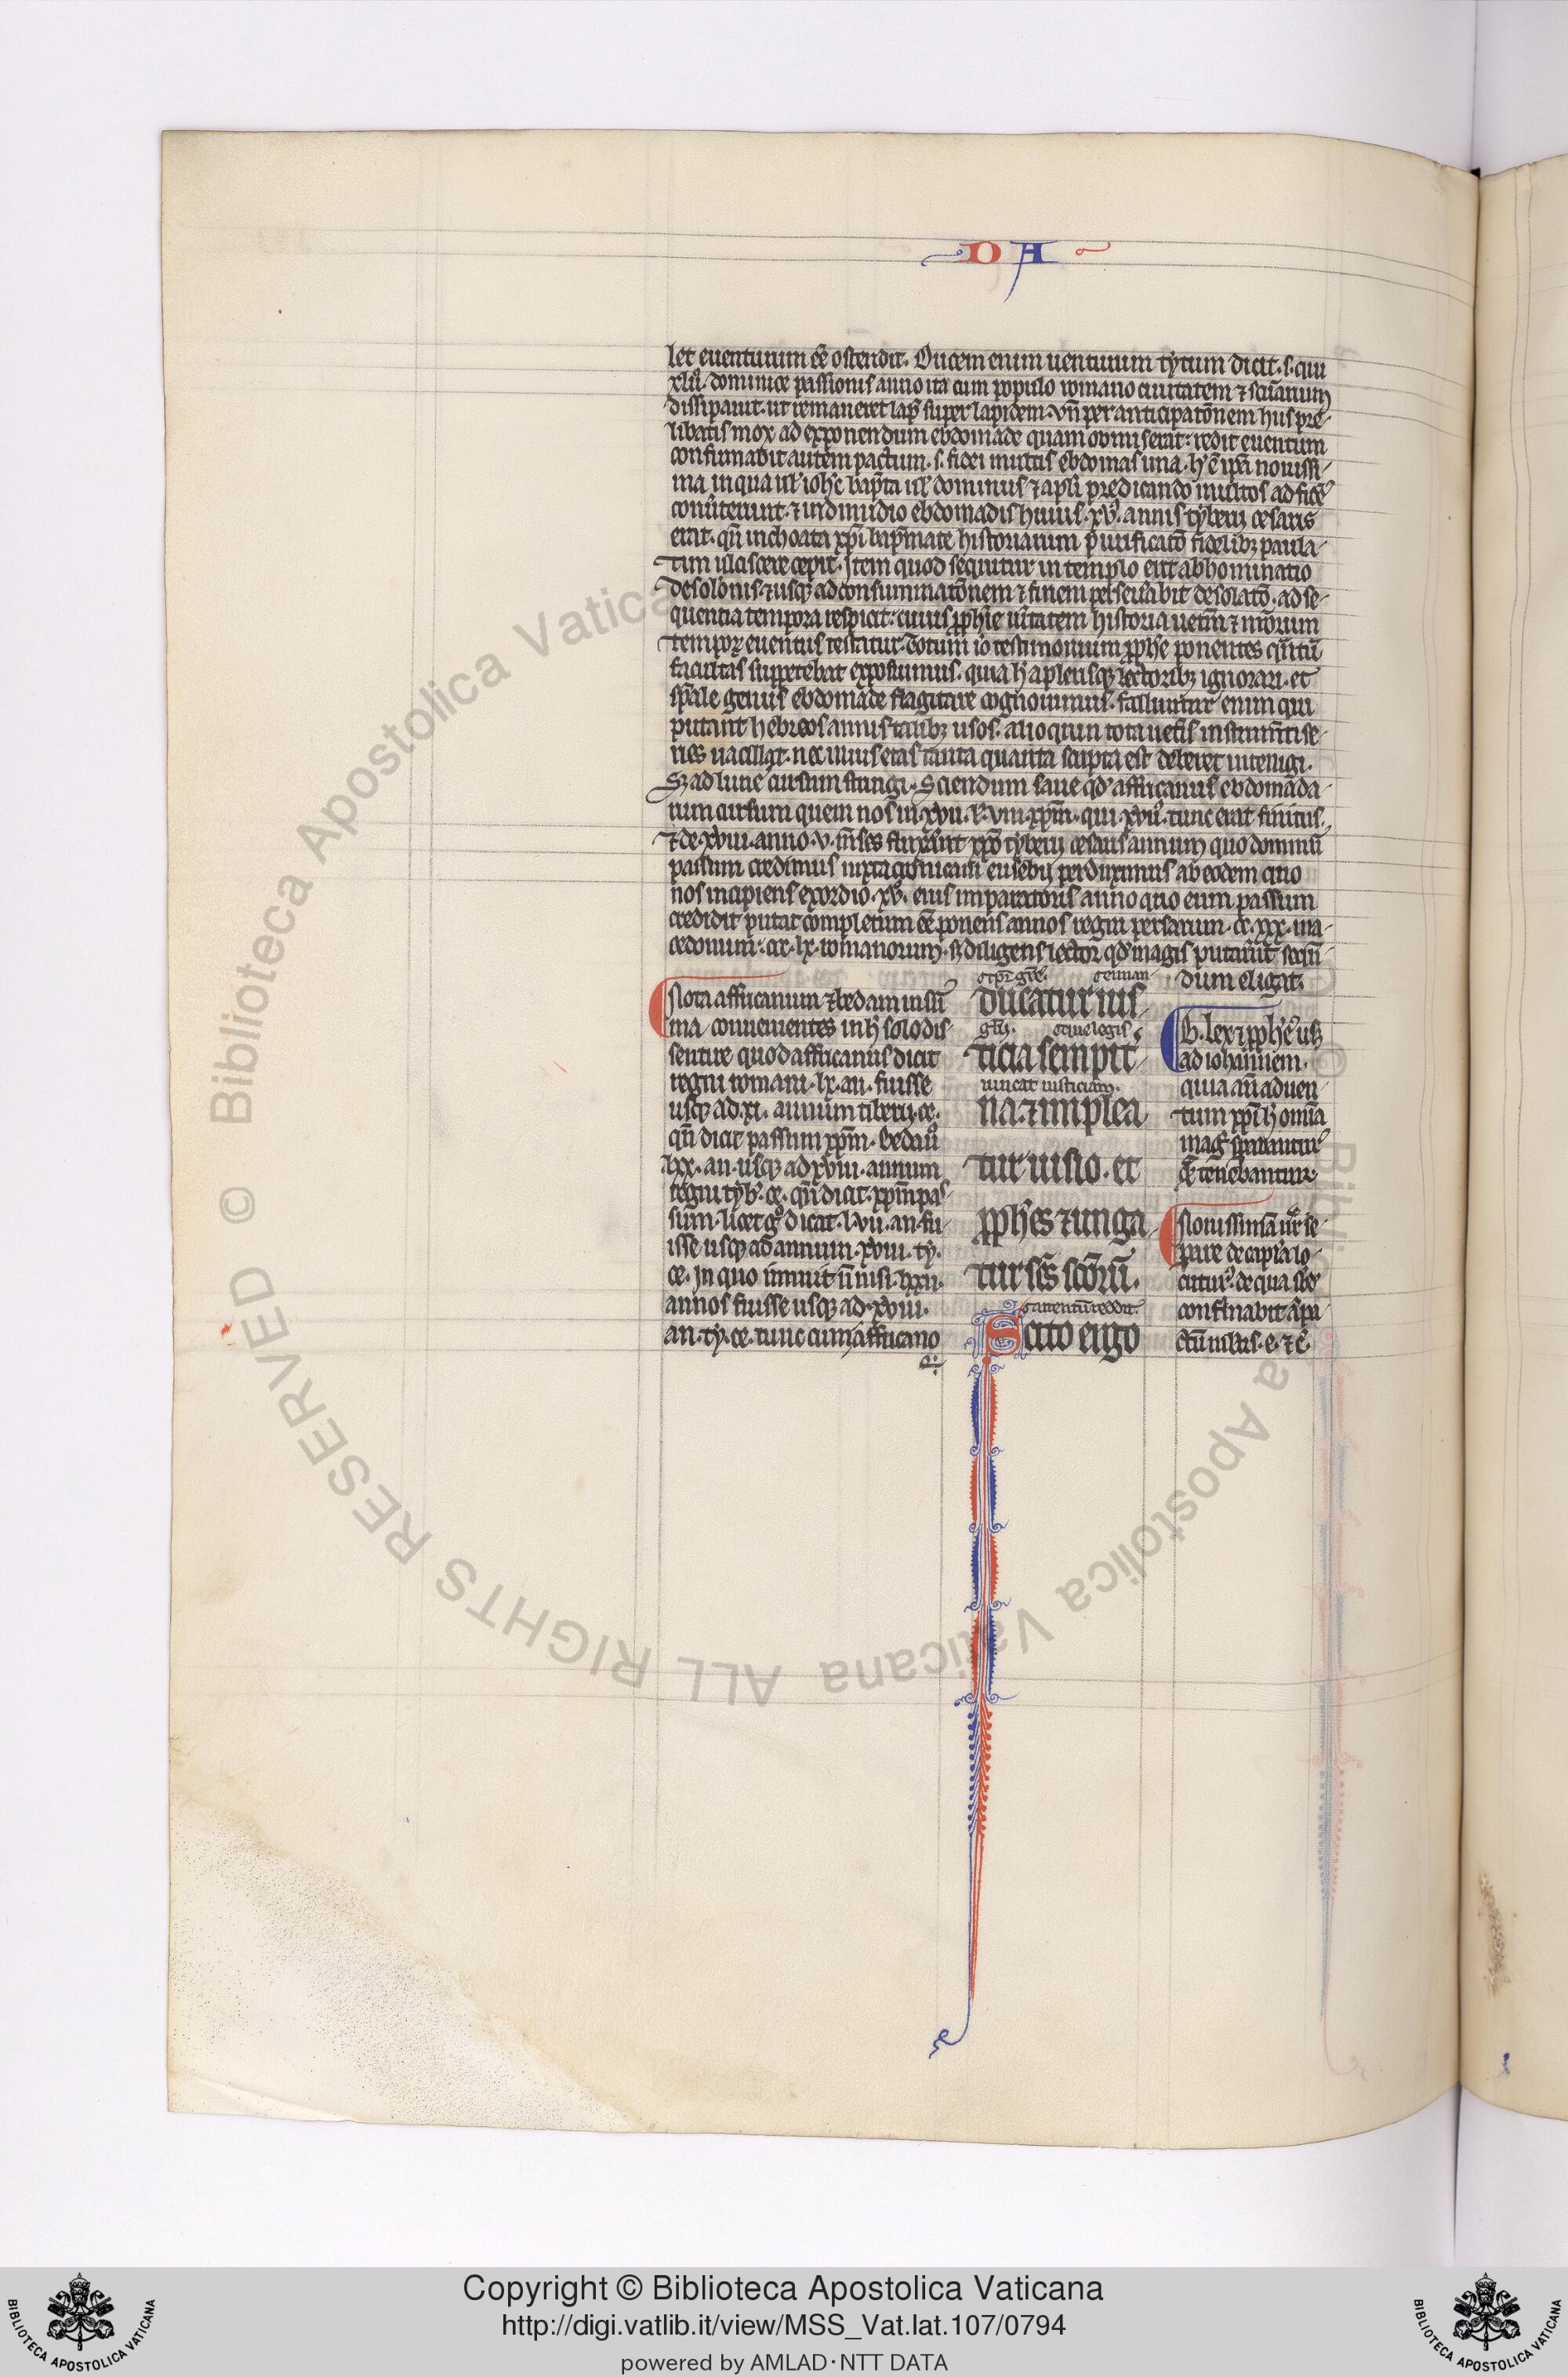 D A
let euenturum eē ostendit. Ducem enim uenturum tytum dicit .s. qui
dominice passionis anno ita cum populo romano ciuitatem ⁊ sc̄uarium
dissipauit. ut remaneret lap̄ super lapidem. vn̄ per anticipatōnem hiis pre-
libatis mox ad exponendum ebdomade quam omiserat: redit euentum
confirmabit autem pactum .s. fidei multis ebdomas una. h̓ ē ip̄a nouissi-
ma in qua uł ioh̄c bap̄ta uł dominus ⁊ apl̓i predicando multos ad fidē
conu̓terunt. ⁊ in dimidio ebdomadis huius .xv. annis tyberij cesaris
erat. qn̄ inchoata xp̄i bap̄mate historiarum purificatō fidelibꝫ paula-
tim uilescere cepit. Item quod sequitur in templo erit abhominatio
desolōnis. ⁊ usqꝫ ad consummatōnem ⁊ finem perseu̓abit desolatō. ad se-
quentia tempora respicit: cuius ꝓph̄ie u̓itatem historia uet̄m ⁊ nr̄orum
tempoꝝ euentus testatur. Totum io̓ testimonium ꝓph̄e ponentes qn̄tū
facultas suppetebat exposuimus. quia h̓ a plerisqꝫ lectoribꝫ ignorari. et
sp̄ale genus ebdomade flagitare cognouimus. falluntur enim qui
putant hebreos annis talibꝫ usos. alioquin tota uet̓is instrum̄ti se-
ries uacillꝫt. nec illius etas tanta quanta scripta est deberet intelligi.
Sꝫ ad lune cursum stringi. Sciendum sane qd̓ affricanus ebdomada-
rum cursum quem nos in .xvii. ł .viii. xp̄m. qui .xvii. tunc erat finitus.
⁊ de .xviii. anno .v. m̄ses fluxer̄nt. tyberij cesaris annum quo dominū
passum credimus iuxta cronicam eusebij perduximus ab eodem quo
nos incipiens exordio .xv. eius imperatoris anno quo eum passum
credidit putat completum eē ponens annos regni persarum .cc.xxx. ma-
cedonum .ccc.lx. romanorum. sꝫ diligens lector qd̓ magis putau̓it sequn̄
dum eligat.
Nota affricanum ⁊ bedam in sū-
ma conuenientes in h̓ solo dis-
sentire quod affricanus dicit
regni romani .lx. an. fuisse
usqꝫ ad .xi. annum tiberij ce.
qn̄ dicit passum xp̄m. beda u̓
.lxx. an. usqꝫ ad xviii. annum
regni tyb̓. ce. qn̄ dicit xp̄m pas-
sum. licet g̊ dicat .l.vii. an. fu-
isse usqꝫ ad annum .xviii. ty.
ce. In quo innuit n̄ nisi .lxxii.
annos fuisse usqꝫ ad .xviii.
an. ty. ce. tunc cum affricano
ducatur ius-
ticia sempit̓-
uincat iusticiam.
na. ⁊ implea-
tur uisio. et
ꝓph̄es ⁊ unga-
tur sc̄s sc̄oꝝ.
attentū reddit.
Scito ergo
lex ⁊ ꝓph̄e usqꝫ
ad iohannem.
quia an̄ aduen-
tum xp̄i h̓ omīa
mag̓ sperabantur
q̄ tenebantur.
Nouissimā ur̄ se-
pare de cap̓ta lo-
cutur̓. de qua sb̓dit
confirmabit a. pa-
ctū multis. e. ⁊ c̄.
Copyright © Biblioteca Apostolica Vaticana
http://digi.vatlib.it/view/MSS_Vat.lat.107/0794
powered by AMLAD·NTT DATA
BIBLIOTECA APOSTOLICA VATICANA
BIBLIOTECA APOSTOLICA VATICANA
© Biblioteca Apostolica Vaticana ALL RIGHTS RESERVED